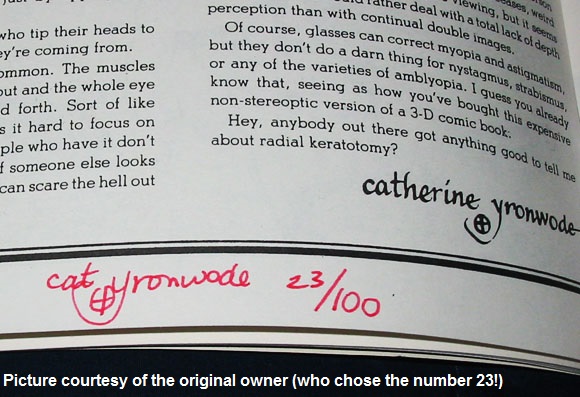 who tip their heads to
ey're coming from.
ommon. The muscles
out and the whole eye
d forth. Sort of like
s it hard to focus on
ple who have it don't
f someone else looks
can scare the hell out
viewing, but it seems
rather deal with a total lack of depth
perception than with continual double images.
Of course, glasses can correct myopia and astigmatism,
but they don't do a darn thing for nystagmus, strabismus,
or any of the varieties of amblyopia. I guess you already
know that, seeing as how you've bought this expensive
non-stereoptic version of a 3-D comic book.
Hey, anybody out there got anything good to tell me
about radial keratotomy?
catherine yronwode
cat yronwode 23/100
Picture courtesy of the original owner (who chose the number 23!)